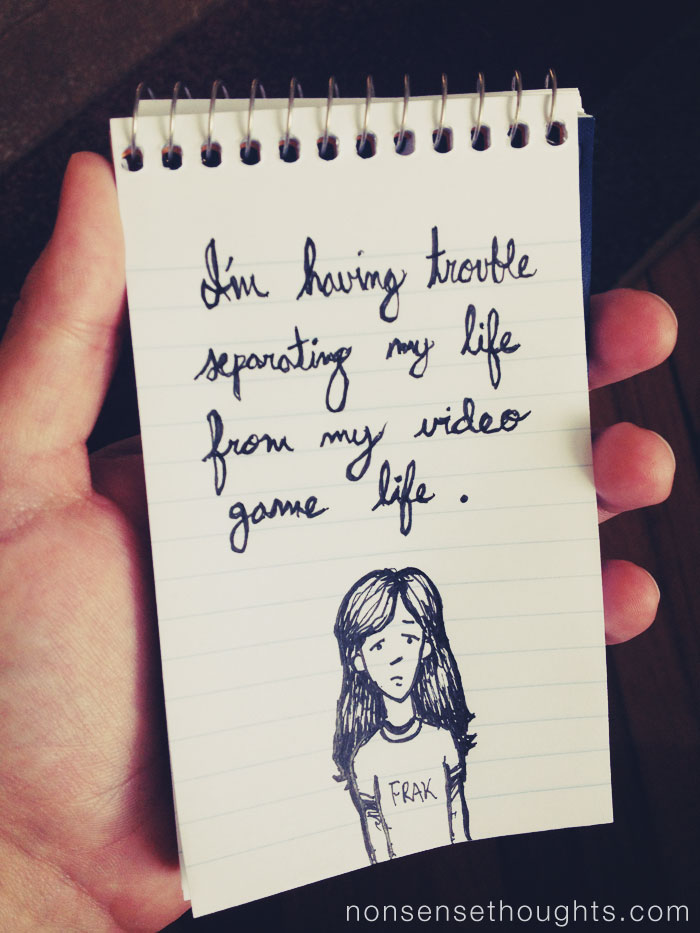 I'm having trouble
separating my life
from my video
game life.
FRAK
nonsensethoughts.com